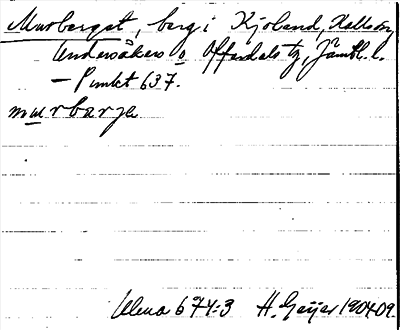 Murberget, berg i Kjoland, Kall sn,
Undersåkers o Offerdals tg, Jämtl. l.
— Punkt 637.
murbarje
Ulma 674:3 H. Geijer 1904-09.